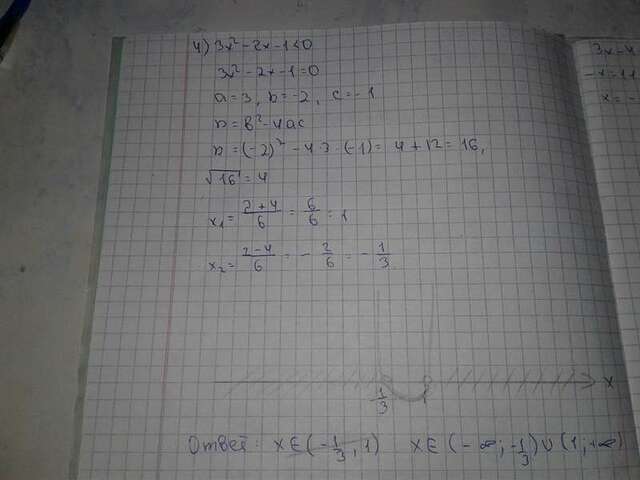 4) 3x² - 2x - 1 < 0
3x² - 2x - 1 = 0
a = 3, b = -2, c = -1
D = b² - 4ac
D = (-2)² - 4·3·(-1) = 4 + 12 = 16,
√16 = 4
x₁ = (2+4)/6 = 6/6 = 1
x₂ = (2-4)/6 = -2/6 = -1/3
-1/3 1 x
Ответ: x ∈ (-1/3; 1) x ∈ (-∞; -1/3) ∪ (1; +∞)
3x - 4
-x = 11
x = -